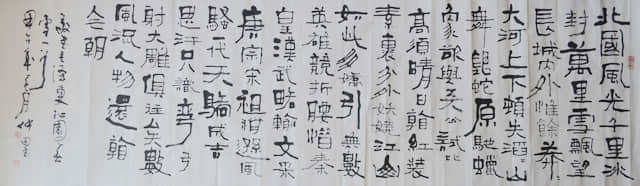 北國風光千里冰
封萬里雪飄望
長城内外惟餘莽
大河上下頓失滔山
舞銀蛇原馳蠟
象欲與天公試比
高須晴日看紅裝
素裹分外妖嬈江山
如此多嬌引無數
英雄競折腰惜秦
皇漢武略輸文采
唐宗宋祖稍遜風
騷代天驕成吉
思汗只識彎弓
射大雕俱往矣數
風流人物還看
今朝
毛澤東沁園春
雪一首